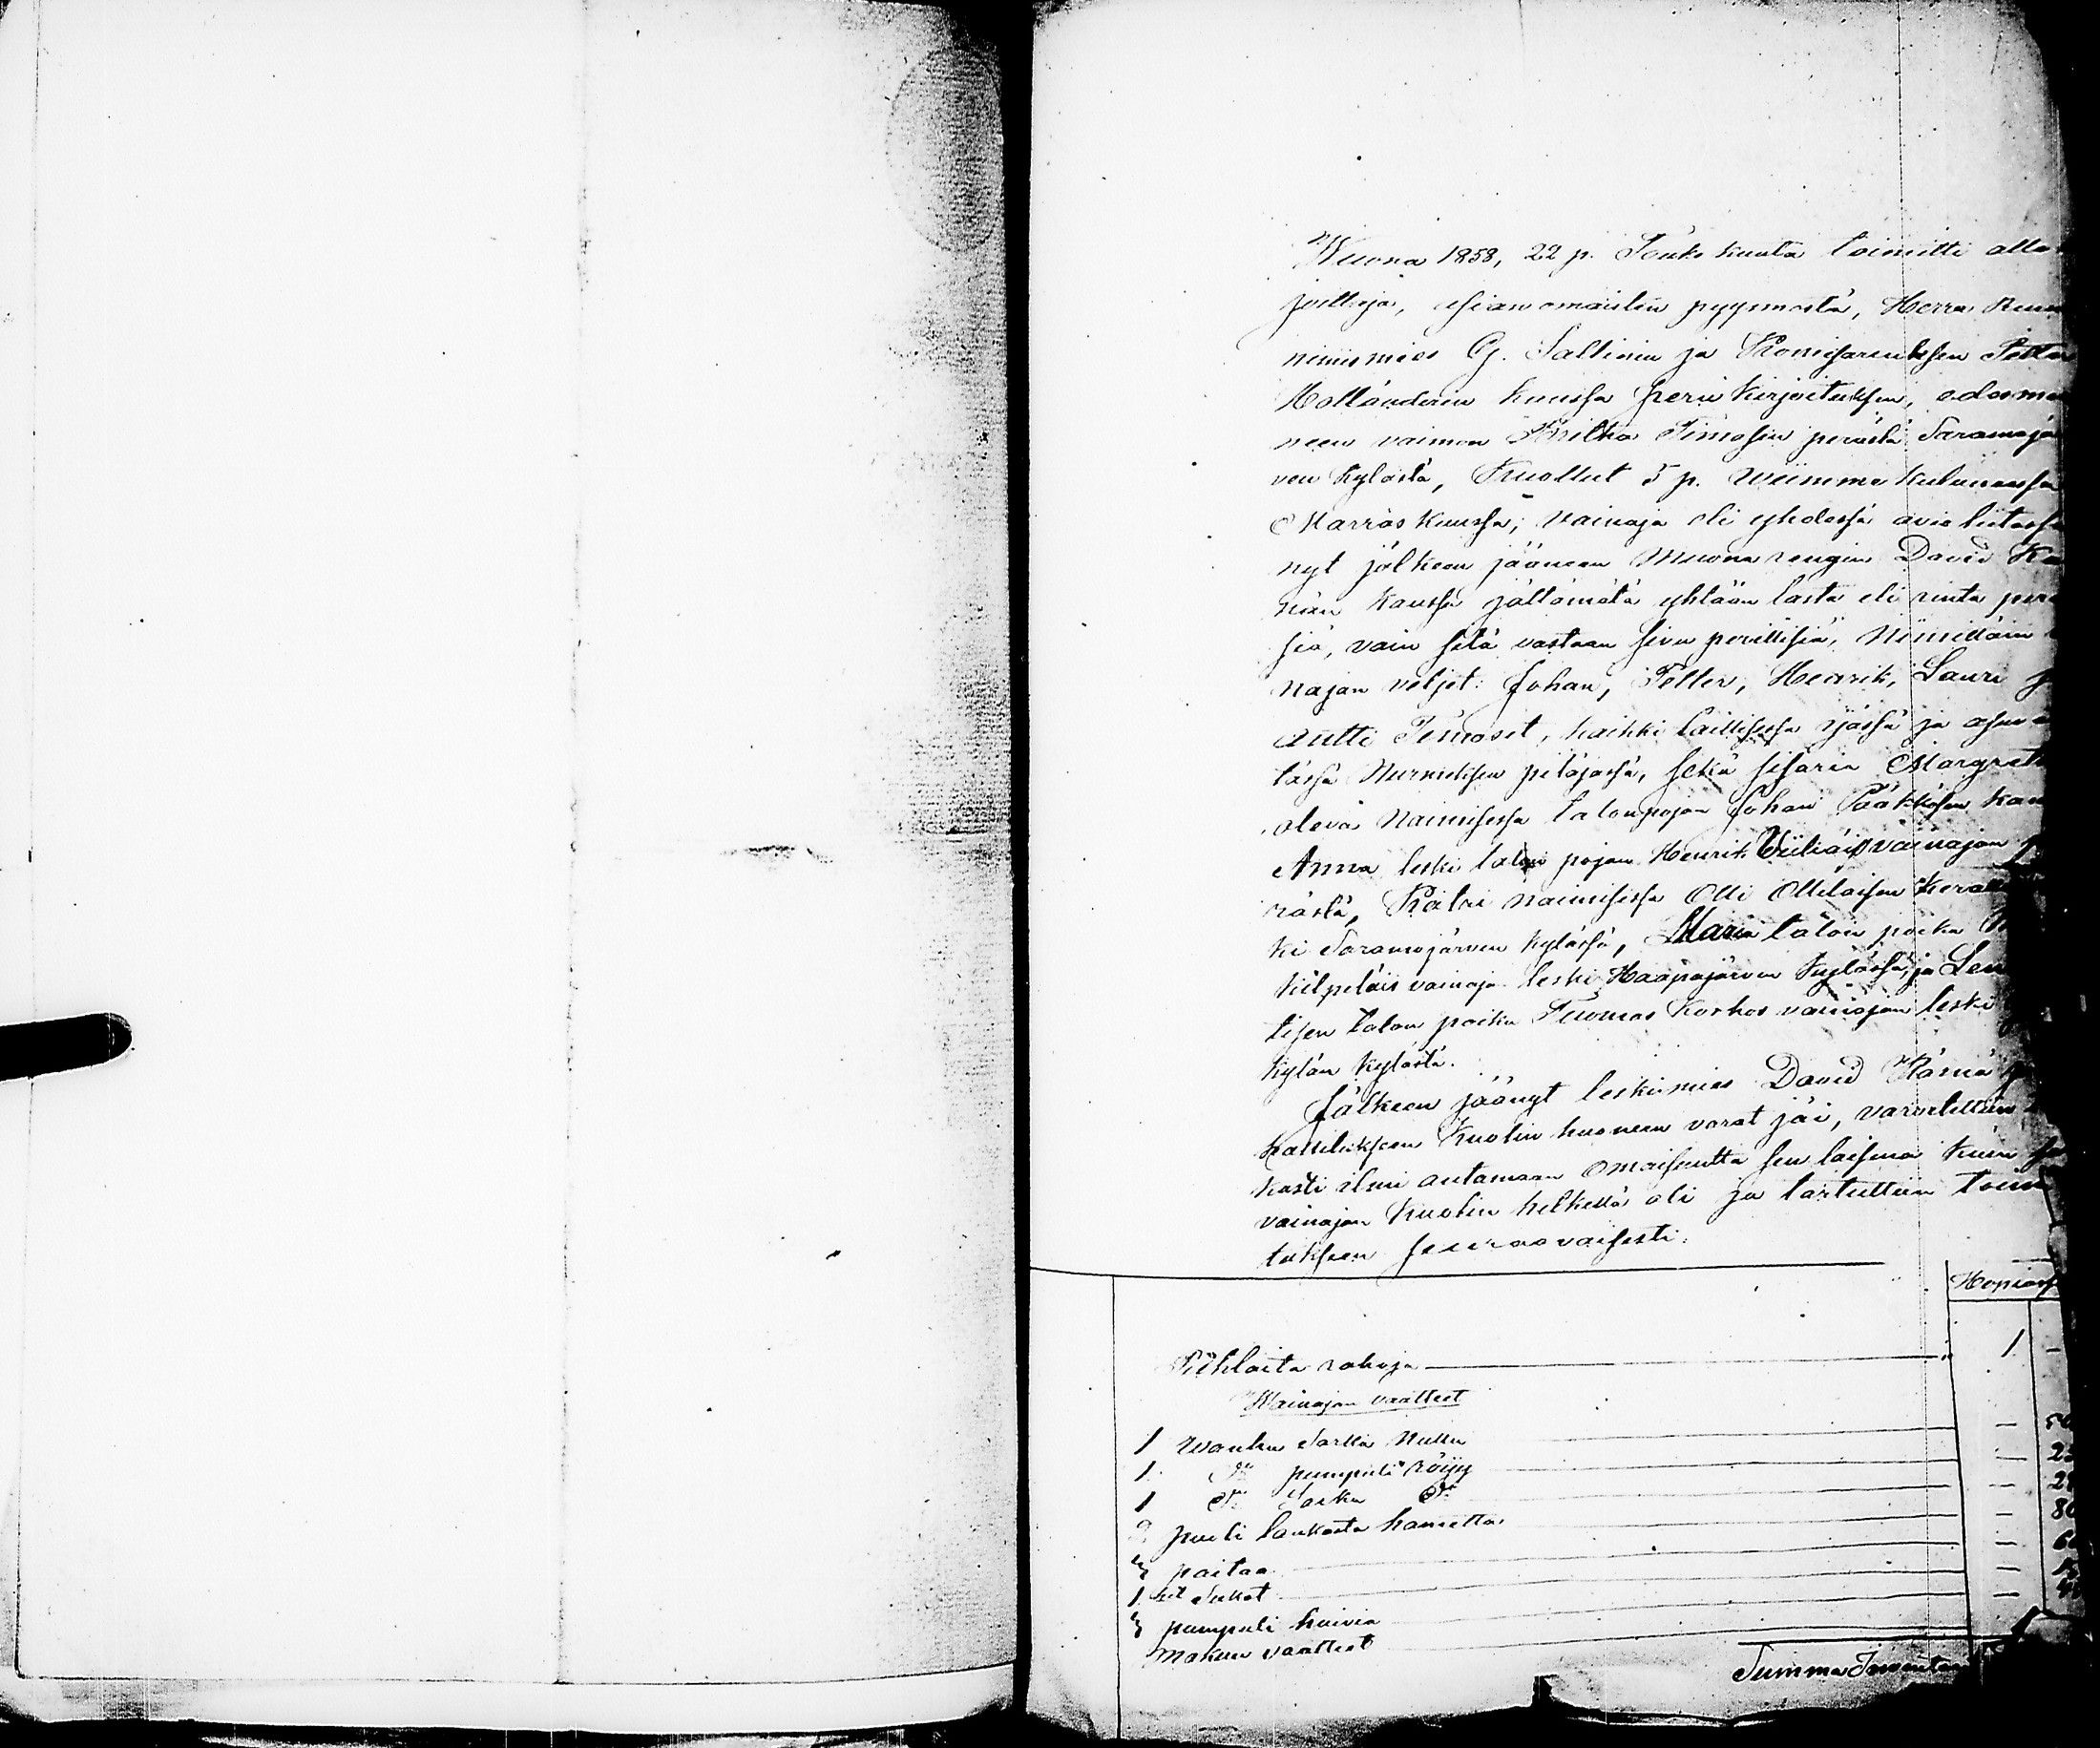 Wuona 1858, 22 p. Touko kuuta toimitti alle
joittaja, asian omaisten pyynnöstä, Herra Ruu
nimismies G. Sallinin ja Komisariuksen Petter
Holländerin kanssa perukirjoituksen, edesmen
neen vaimon Timosen perästä Saramojär
ven kylästä, kuollut 5 p. wiimme kuluneessa
Marraskuussa; vainaja oli yhdessä avioliitossa
nyt jälkeen jääneen Muona rengin David Kä
nän kanssa jättämätä yhtään lasta eli rinta peri
siä, vain sitä vastaan sivu perillisiä, Nimittäin
najan veljet: Johan, Petter, Henrik, Lauri j
Antti Timoset, kaikki laillisessa ijässä ja asuva
tassa Nurmeksen pitäjässä, sekä sisaria Margret
oleva Naimisessa talonpojan Johan Pääkkösen kan
Anna leski talon pojan Henrik vainajan
rästä, Katri naimisessa Olli Ollilaisen kera
ki Saramojärven kylässä, Maria talon poika
Kilpeläis vainaja leski Haapajärven kylässä, ja Len
tisen talon poika Tuomas Korhos vainajan leski
kylän kylästä.
Jälkeen jäänyt leskimies David
hallituksen kuolin huoneen varat jäi, varoitettiin
kasti ilmi antamaan omaisuutta sen laisena kuin se
vainajan kuolin hetkellä oli ja tartuttiin toim
tukseen seuraavaisesti:
Hopiass
Puhtaita rahoja 1 –
Wainajan vaatteet
1 Wanha Sarka Nuttu – 50
1 Do pumpuli röijy – 25
1 Do Do – 2
2 puoli hametta – 80
3 paitaa – 6
1 Sukat –
3 pumpuli huivia –
Makuu vaatteet
Summa